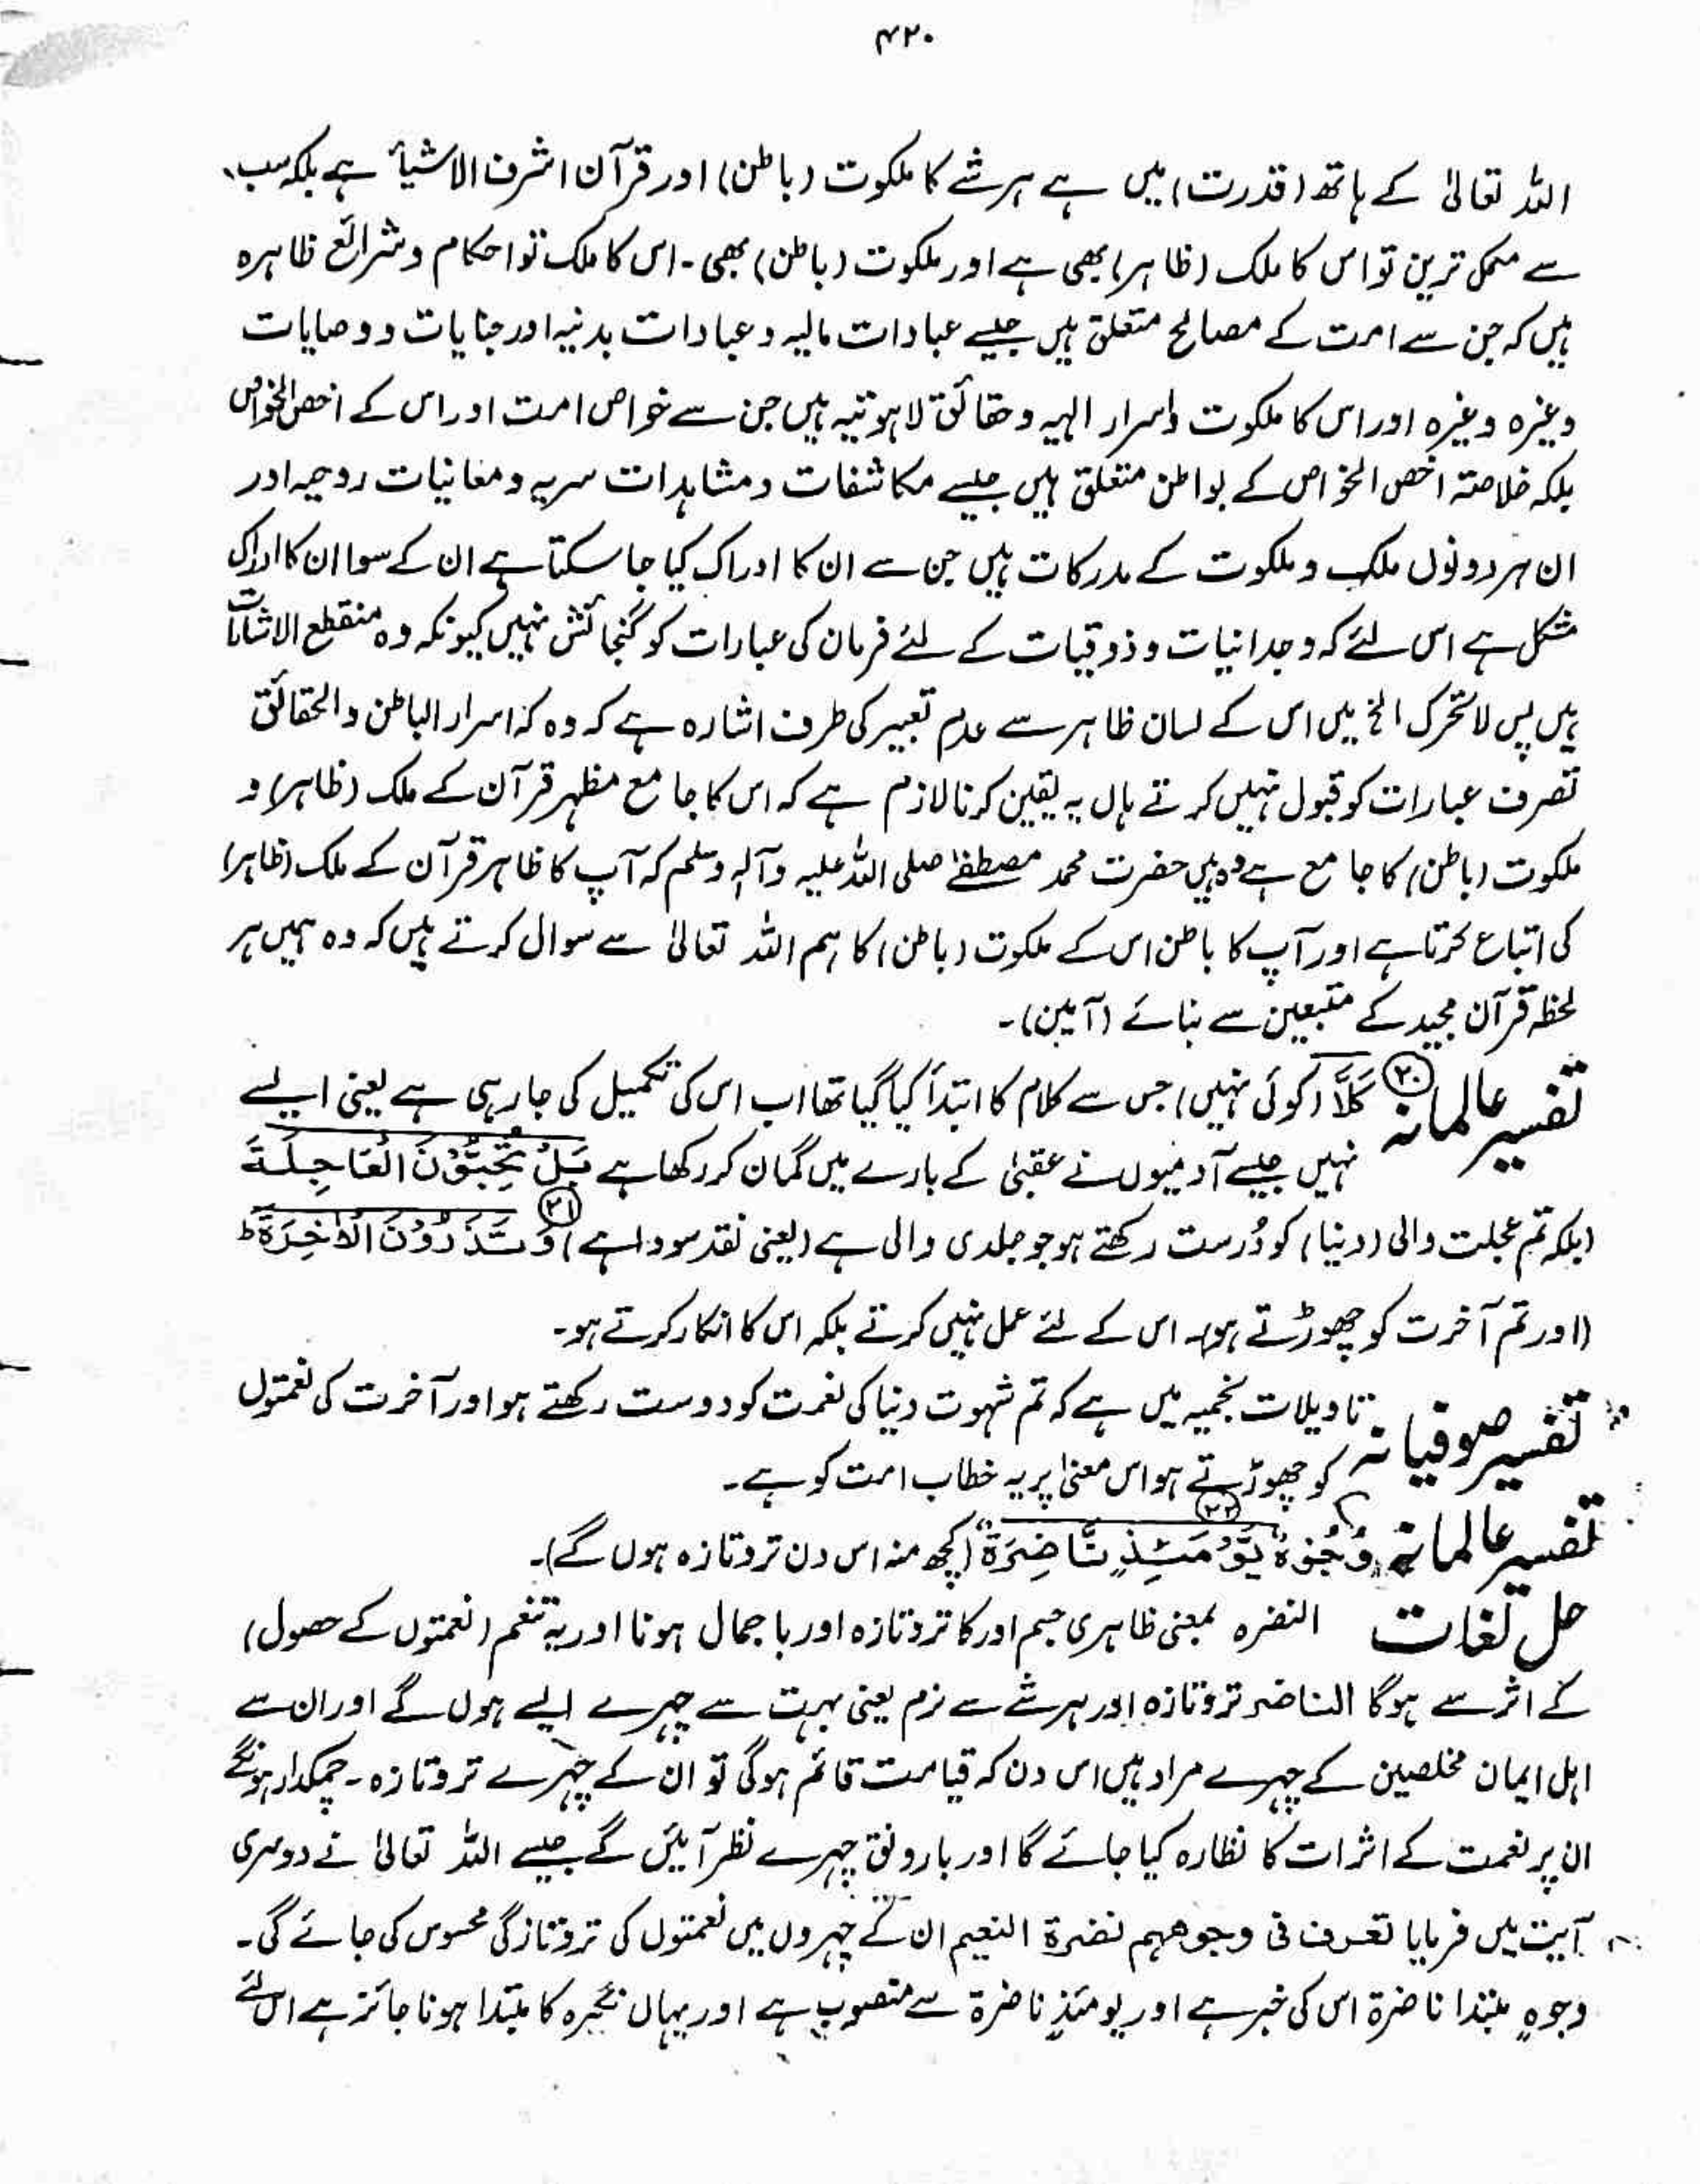 ۴۲۰
اللہ تعالیٰ کے ہاتھ (قدرت) میں ہے ہر شے کا ملکوت (باطن) اور قرآن اشرف الاشیأ ہے بلکہ سب
سے مکمل ترین تو اس کا ملک (ظاہر) بھی ہے اور ملکوت (باطن) بھی۔ اس کا ملک تو احکام و شرائع ظاہرہ
ہیں کہ جن سے امت کے مصالح متعلق ہیں جیسے عبادات مالیہ و عبادات بدنیہ اور جنایات و وصایات
وغیرہ وغیرہ اور اس کا ملکوت و اسرار الہیہ و حقائق لاہوتیہ ہیں جن سے خواص امت اور اس کے اخص الخواص
بلکہ خلاصتہ اخص الخواص کے بواطن متعلق ہیں جیسے مکاشفات و مشاہدات سریہ و معانیات روحیہ اور
ان ہر دونوں ملک و ملکوت کے مدرکات ہیں جن سے ان کا ادراک کیا جا سکتا ہے ان کے سوا ان کا ادراک
مشکل ہے اس لئے کہ وجدانیات و ذوقیات کے لئے فرمان کی عبارات کو گنجائش نہیں کیونکہ وہ منقطع الاشارات
ہیں پس لا تحرک الخ میں اس کے لسان ظاہر سے عدم تعبیر کی طرف اشارہ ہے کہ وہ کہ اسرار الباطن والحقائق
تصرف عبارات کو قبول نہیں کرتے ہاں یہ یقین کرنا لازم ہے کہ اس کا جامع مظہر قرآن کے ملک (ظاہر) و
ملکوت (باطن) کا جامع ہے وہ ہیں حضرت محمد مصطفےٰ صلی اللہ علیہ وآلہ وسلم کہ آپ کا ظاہر قرآن کے ملک (ظاہر)
کی اتباع کرتا ہے اور آپ کا باطن اس کے ملکوت (باطن) کا ہم اللہ تعالیٰ سے سوال کرتے ہیں کہ وہ ہمیں ہر
لحظہ قرآن مجید کے متبعین سے بنائے (آمین)۔
تفسیر عالمانہ ۲۰ کَلَّا (کوئی نہیں) جس سے کلام کا ابتدأ کیا گیا تھا اب اس کی تکمیل کی جا رہی ہے یعنی ایسے
نہیں جیسے آدمیوں نے عقبیٰ کے بارے میں گمان کر رکھا ہے بَلْ تُحِبُّوْنَ الْعَاجِلَةَ
(بلکہ تم عجلت والی (دنیا) کو دُرست رکھتے ہو جو جلدی والی ہے (یعنی نقد سودا ہے) ۲۱ وَتَذَرُوْنَ الْاٰخِرَةَ ط
(اور تم آخرت کو چھوڑتے ہو)۔ اس کے لئے عمل نہیں کرتے بلکہ اس کا انکار کرتے ہو۔
تفسیر صوفیانہ تاویلات نجمیہ میں ہے کہ تم شہوت دنیا کی نعمت کو دوست رکھتے ہو اور آخرت کی نعمتوں
کو چھوڑتے ہو اس معنیٰ پر یہ خطاب امت کو ہے۔
تفسیر عالمانہ وُجُوْهٌ یَّوْمَئِذٍ نَّاضِرَةٌ ۲۲ (کچھ منہ اس دن تروتازہ ہوں گے)۔
حل لغات النضرہ بمعنی ظاہری جسم اور کا تروتازہ اور باجمال ہونا اور یہ تنعم (نعمتوں کے حصول)
کے اثر سے ہوگا الناضر تروتازہ اور ہر شے سے نرم یعنی بہت سے چہرے ایسے ہوں گے اور ان سے
اہل ایمان مخلصین کے چہرے مراد ہیں اس دن کہ قیامت قائم ہوگی تو ان کے چہرے تروتازہ۔ چمکدار ہونگے
ان پر نعمت کے اثرات کا نظارہ کیا جائے گا اور بارونق چہرے نظر آئیں گے جیسے اللہ تعالیٰ نے دوسری
آیت میں فرمایا تعرف فی وجوھھم نضرۃ النعیم ان کے چہروں میں نعمتوں کی تروتازگی محسوس کی جائے گی۔
وجوہ مبتدا ناضرۃ اس کی خبر ہے اور یومئذٍ ناضرۃ سے منصوب ہے اور یہاں نکرہ کا مبتدا ہونا جائز ہے اس لئے